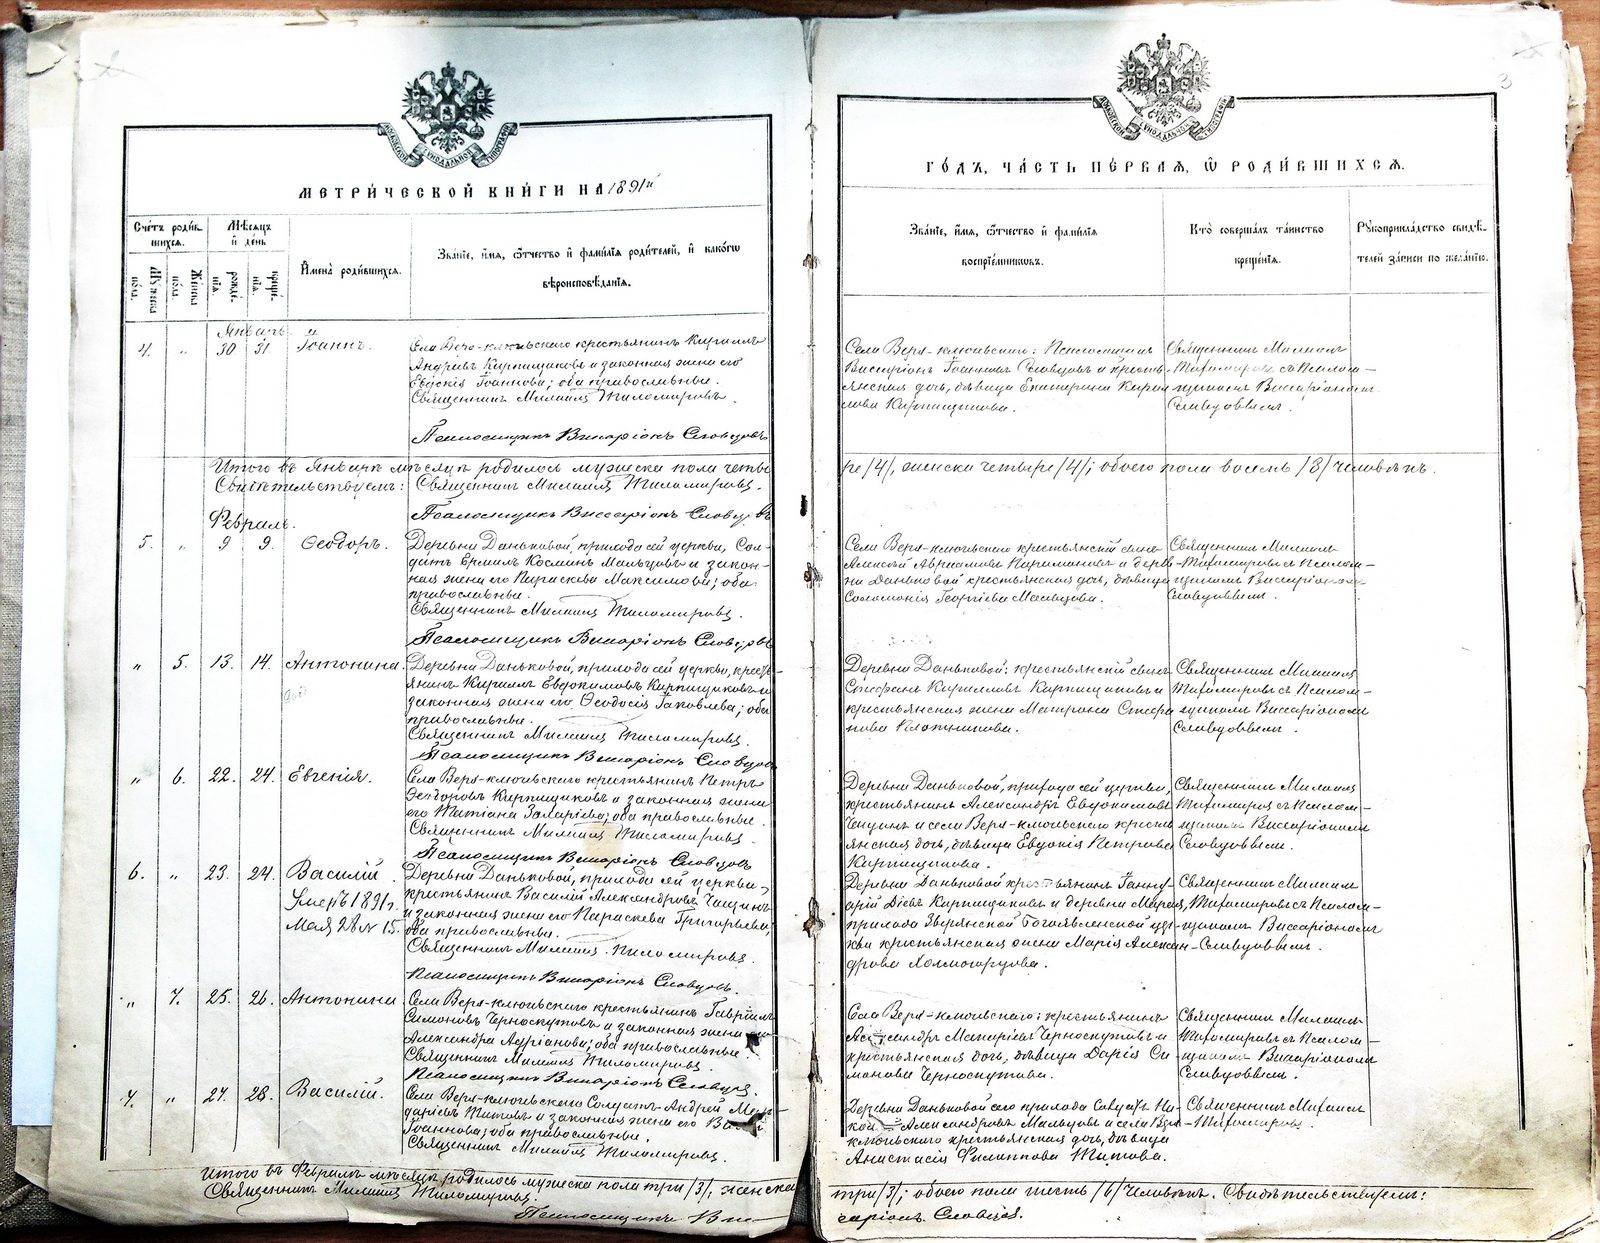 3
МОСКОВСКОЙ СѴНОДАЛЬНОЙ ТИПОГРАФІИ
МЕТРИ́ЧЕСКОЙ КНИ́ГИ НА 1891й
Сче́тъ роди́в-
шихся.
Мѣ́сяцъ
и҆ де́нь
Му́жеска
по́ла.
Же́нска
по́ла.
рожде́-
нія.
креще́-
нія.
И҆мена̀ роди́вшихся.
Зва́ніе, и҆́мя, ѻ҆́тчество и҆ фами́лія роди́телей, и҆ како́гѡ
вѣроисповѣ́данія.
Январь
4. " 30 31 Іоаннъ.
Села Верх-ключевского крестьянинъ Кириллъ
Андреевъ Кирпищиковъ и законная жена его
Евдокія Іоаннова; оба православные.
Священникъ Михаилъ Тихомировъ.
Псаломщикъ Виссаріонъ Словцовъ
Итого въ Январѣ мѣсяцѣ родилось мужеска пола четы-
Свидѣтельствуемъ: Священникъ Михаилъ Тихомировъ.
Псаломщикъ Виссаріонъ Словцовъ
Февраль.
5. " 9 9. Ѳеодоръ.
Деревни Даньковой, прихода сей церкви, Сол-
датъ Ермилъ Косминъ Мальцовъ и закон-
ная жена его Параскева Максимова; оба
православные.
Священникъ Михаилъ Тихомировъ.
Псаломщикъ Виссаріонъ Словцовъ
" 5. 13. 14. Антонина.
Деревни Даньковой, прихода сей церкви, кресть-
янинъ Кириллъ Евдокимовъ Кирпищиковъ и
законная жена его Ѳеодосія Іаковлева; оба
православные.
Священникъ Михаилъ Тихомировъ.
Псаломщикъ Виссаріонъ Словцовъ
" 6. 22. 24. Евгенія.
Села Верх-ключевского крестьянинъ Петръ
Ѳеодоровъ Кирпищиковъ и законная жена
его Татіана Захаріева; оба православные.
Священникъ Михаилъ Тихомировъ.
Псаломщикъ Виссаріонъ Словцовъ
6. " 23. 24. Василій.
Умеръ 1891 г.
Мая 28 № 15.
Деревни Даньковой, прихода сей церкви,
крестьянинъ Василій Александровъ Чащинъ
и законная жена его Параскева Григорьева;
оба православные.
Священникъ Михаилъ Тихомировъ.
Псаломщикъ Виссаріонъ Словцовъ.
" 7. 25. 26. Антонина
Села Верх-ключевского крестьянинъ Гавріилъ
Симоновъ Черноскутовъ и законная жена его
Александра Адріанова; оба православные
Священникъ Михаилъ Тихомировъ.
Псаломщикъ Виссаріонъ Словцовъ.
7. " 27. 28. Василій.
Села Верх-ключевского Солдатъ Андрей
Титовъ и законная жена его
Іоаннова; оба православные.
Священникъ Михаилъ Тихомировъ.
Итого въ Февралѣ мѣсяцѣ родилось мужеска пола три /3/; женска
Священникъ Михаилъ Тихомировъ.
Псаломщикъ Вис-
ГО́ДЪ, ЧА́СТЬ ПЕ́РВАЯ, Ѿ РОДИ́ВШИХСЯ.
Зва́ніе, и҆́мя, ѻ҆́тчество и҆ фами́лія
воспріе́мниковъ.
Кто̀ соверша́лъ та́инство
креще́нія.
Рꙋкоприкла́дство свидѣ́-
телей за́писи по жела́нію.
Села Верх-ключевского: Псаломщикъ
Виссаріонъ Іоанновъ Словцовъ и кресть-
янская дочь, дѣвица Екатерина Кирил-
лова Кирпищикова.
Священникъ Михаилъ
Тихомировъ съ Псалом-
щикомъ Виссаріономъ
Словцовымъ.
ре /4/, женска четыре /4/; обоего пола восемь /8/ человѣкъ.
Села Верх-ключевского крестьянскій сынъ
Алексѣй Авраамовъ и дерев-
ни Даньковой крестьянская дочь, дѣвица
Соломонія Георгіева Мальцова.
Священникъ Михаилъ
Тихомировъ съ Псалом-
щикомъ Виссаріономъ
Словцовымъ.
Деревни Даньковой: крестьянскій сынъ
Стефанъ Кирилловъ Кирпищиковъ и
крестьянская жена Матрона Стефа-
нова
Священникъ Михаилъ
Тихомировъ съ Псалом-
щикомъ Виссаріономъ
Словцовымъ.
Деревни Даньковой, прихода сей церкви,
крестьянинъ Александръ Евдокимовъ
Чащинъ и села Верх-ключевского кресть-
янская дочь, дѣвица Евдокія Петрова
Кирпищикова.
Священникъ Михаилъ
Тихомировъ съ Псалом-
щикомъ Виссаріономъ
Словцовымъ.
Деревни Даньковой крестьянинъ Іанну-
арій Дієвъ Кирпищиковъ и деревни
прихода Звѣрянской Богоявленской цер-
кви крестьянская жена Марія Алексан-
дрова Холмогорцова.
Священникъ Михаилъ
Тихомировъ съ Псалом-
щикомъ Виссаріономъ
Словцовымъ.
Села Верх-ключевского: крестьянинъ
Александръ Макаріевъ Черноскутовъ и
крестьянская дочь, дѣвица Дарія Си-
монова Черноскутова.
Священникъ Михаилъ
Тихомировъ съ Псалом-
щикомъ Виссаріономъ
Словцовымъ.
Деревни Даньковой сего прихода Солдатъ Ни-
Александровъ Мальцовъ и села Верх-
ключевского крестьянская дочь, дѣвица
Анастасія Филиппова Титова.
Священникъ Михаилъ
Тихомировъ.
три /3/; обоего пола шесть /6/ человѣкъ. Свидѣтельствуемъ:
саріонъ Словцовъ.